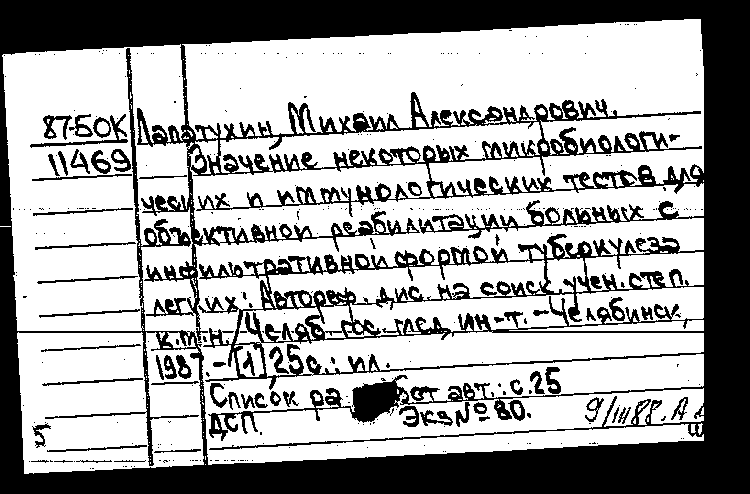 87-5ОК Лапатухин, Михаил Александрович.
11469 Значение некоторых микробиологи-
ческих и иммунологических тестов для
объективной реабилитации больных с
инфильтративной формой туберкулеза
легких: Автореф. дис. на соиск. учен. степ.
к.м.н./Челяб. гос. мед. ин-т. - Челябинск,
1987. - [1], 25с.: ил.
Список ра бот авт.: с.25
ДСП. Экз № 80. 9/III 88.
5